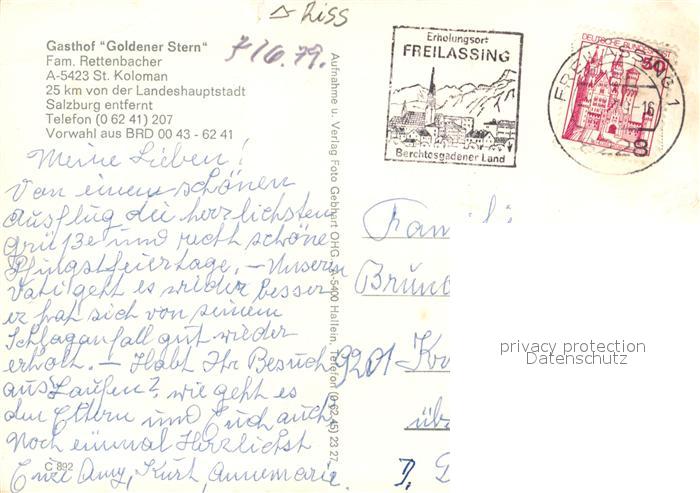 Riss
7/6.79.
Gasthof "Goldener Stern"
Fam. Rettenbacher
A-5423 St. Koloman
25 km von der Landeshauptstadt
Salzburg entfernt
Telefon (0 62 41) 207
Vorwahl aus BRD 00 43 - 62 41
Meine Lieben!
Von einem schönen
Ausflug die herzlichsten
Grüße und recht schöne
Pfingstfeiertage. – Unserm
Vati geht es wieder besser
er hat sich von seinem
Schlaganfall gut wieder
erholt. – Habt Ihr Besuch
aus Laufen? wie geht es
den Eltern und Euch auch.
Noch einmal Herzlichst
Eure Anny, Kurt, Annemarie.
C 892
Aufnahme u. Verlag Foto Gebhart OHG, A-5400 Hallein, Telefon (0 62 45) 23 27
Erholungsort
FREILASSING
Berchtesgadener Land
DEUTSCHE BUNDESPOST
50
FREILASSING 1
-16
8228
Fam
Brün
9201 Kr
üb
D.
privacy protection
Datenschutz